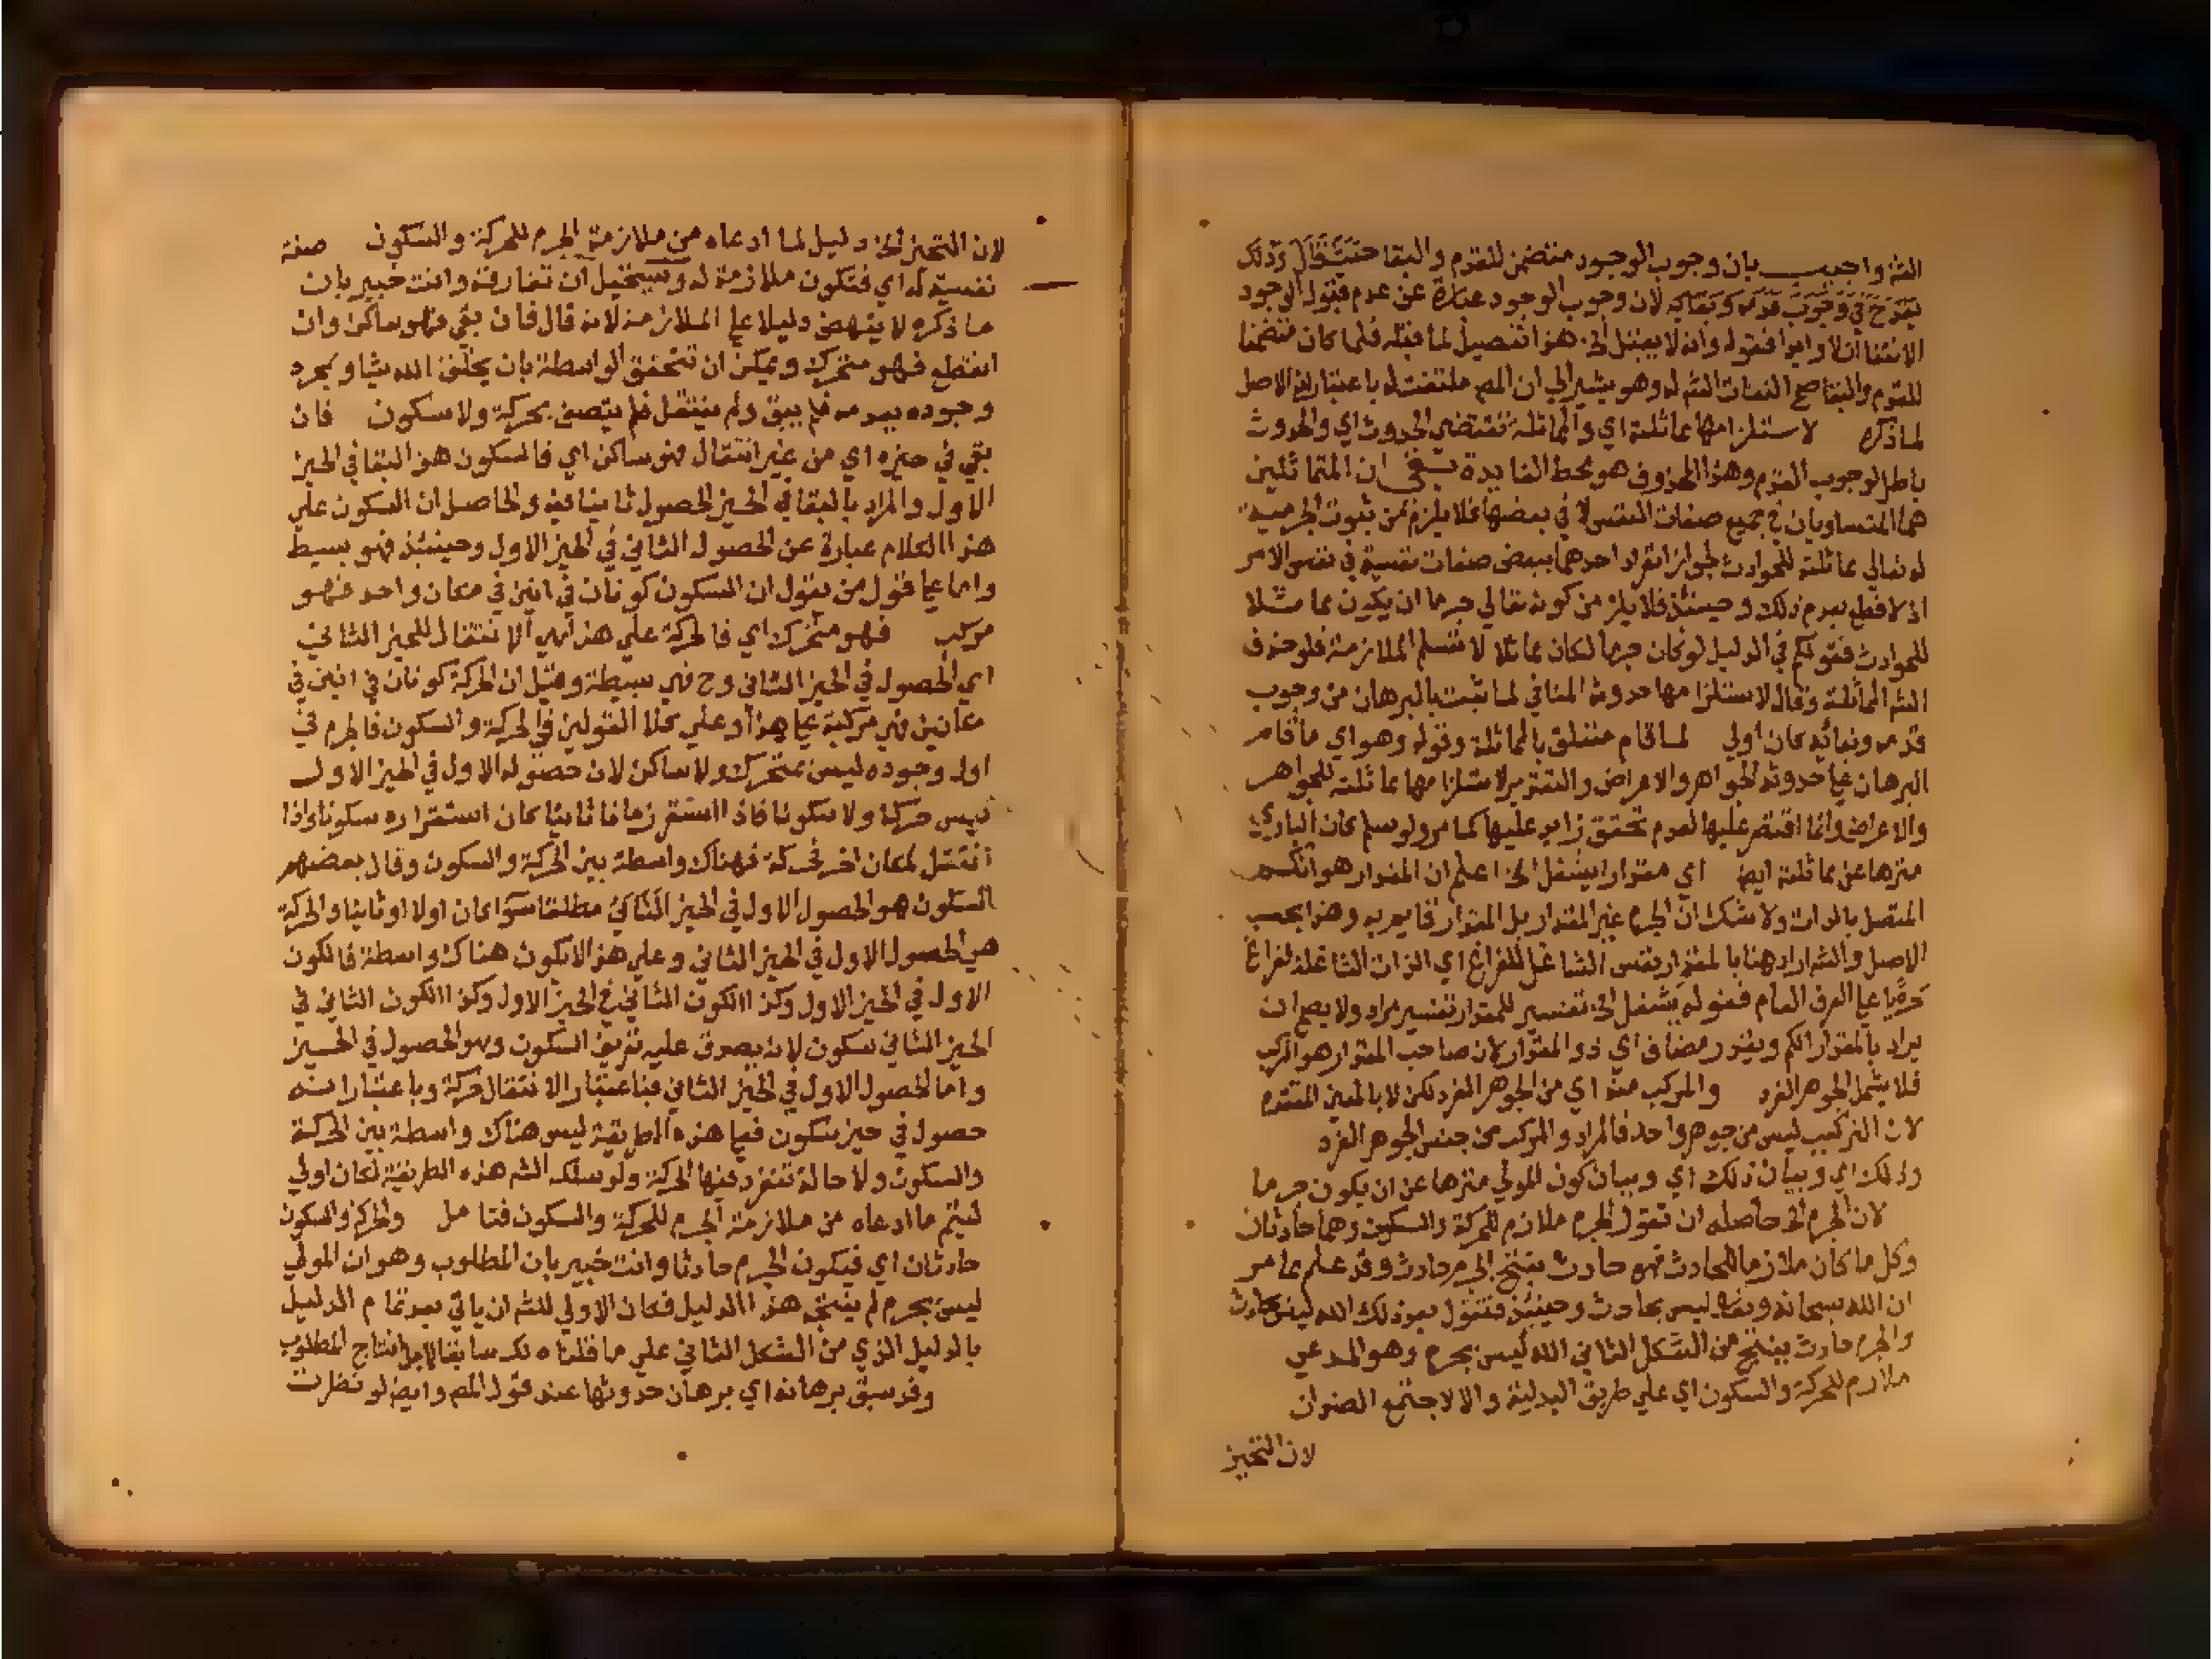 الشه واجيب بان وجوب الوجود متضمن للقدم والبقا حينئذ قال وذلك
يقدح في وجوب قدمه وبقايه لان وجوب الوجود عبارة عن عدم قبول الوجود
الانتفا ازلا وابدا فقوله وانه لا يقبل الخ هذا تفصيل لما قبله فلما كان متضمنا
للقدم والبقا صح التفات الشه له وهو يشير الي ان المص ملتفت له باعتبار الاصل
لما ذكره لاستلزامها مماثلته اي والمماثلة تقتضي الحدوث اي والحدوث
باطل لوجوب القدم وهذا المحذوف هو محط الفايدة بقي ان المتماثلين
هما المتساويان في جميع صفات النفس لا في بعضها فلا يلزم من ثبوت الجرمية
له تعالي مماثلته للحوادث لجواز انفراد احدهما ببعض صفات نفسية في نفس الامر
اذ لا قطع بعدم ذلك وحينئذ فلا يلزم من كونه تعالي جرما ان يكون مماثلا
للحوادث فقولكم في الدليل لو كان جرما لكان مماثلا لا نسلم الملازمة فلو حذف
الشه المماثلة وقال لاستلزامها حدوثه المنافي لما ثبت بالبرهان من وجوب
قدمه وبقائه كان اولي لما قام متعلق بالمماثلة وقوله وهو اي ما قام
البرهان علي حدوثه الجواهر والاعراض والتقدير لاستلزامها مماثلته للجواهر
والاعراض وانما اقتصر عليها لعدم تحقق زايد عليها كما مر ولو سلم كان الباري
منزها عن مماثلته ايض اي مقدارا يشغل الخ اعلم ان المقدار هو الكم
المتصل بالذات ولا شك ان الجرم غير المقدار بل المقدار قايم به وهذا بحسب
الاصل والشه اراد هنا بالمقدار نفس الشاغل للفراغ اي الذات الشاغلة لفراغ
جريا علي العرف العام فقوله يشغل الخ تفسير للمقدار تفسير مراد ولا يصح ان
يراد بالمقدار الكم ويقدر مضاف اي ذو المقدار لان صاحب المقدار هو المركب
فلا يشمل الجوهر الفرد والمركب منه اي من الجوهر الفرد لكن لا بالمعني المتقدم
لان التركيب ليس من جوهر واحد فالمراد والمركب من جنس الجوهر الفرد
وذلك اي وبيان ذلك اي وبيان كون المولي منزها عن ان يكون جرما
لان الجرم الخ حاصله ان تقول الجرم ملازم للحركة والسكون وهما حادثان
وكل ما كان ملازما للحادث فهو حادث ينتج الجرم حادث وقد علم مما مر
ان الله سبحانه وتعالي ليس بحادث وحينئذ فنقول بعد ذلك الله ليس بحادث
والجرم حادث ينتج من الشكل الثاني الله ليس بجرم وهو المدعي
ملازم للحركة والسكون اي علي طريق البدلية والا لاجتمع الضدان
لان التحيز
لان التحيز الخ دليل لما ادعاه من ملازمة الجرم للحركة والسكون صفة
نفسية له اي فتكون ملازمة له ويستحيل ان تفارقه وانت خبير بان
ما ذكره لا ينهض دليلا علي الملازمة لانه قال فان بقي فهو ساكن وان
انتقل فهو متحرك ويمكن ان تتحقق الواسطة بان يخلق الله شيا وبمجرد
وجوده يعدمه فلم يبق ولم ينتقل فلم يتصف بحركة ولا سكون فان
بقي في حيزه اي من غير انتقال فهو ساكن اي فالسكون هو البقا في الحيز
الاول والمراد بالبقا في الحيز الحصول ثانيا فيه والحاصل ان السكون علي
هذا الكلام عبارة عن الحصول الثاني في الحيز الاول وحينئذ فهو بسيط
واما علي قول من يقول ان السكون كونان في انين في مكان واحد فهو
مركب فهو متحرك اي فالحركة علي هذا هي الانتقال للحيز الثاني
اي الحصول في الحيز الثاني وح فهي بسيطة وقيل ان الحركة كونان في انين في
مكانين فهي مركبة علي هذا وعلي كلا القولين في الحركة والسكون فالجرم في
اول وجوده ليس بمتحرك ولا ساكن لان حصوله الاول في الحيز الاول
ليس حركة ولا سكونا فاذا استقر زمانا ثانيا كان استقراره سكونا واذا
انتقل لمكان اخر فحركة فهناك واسطة بين الحركة والسكون وقال بعضهم
السكون هو الحصول الاول في الحيز الثاني مطلقا سوا كان اولا او ثانيا والحركة
هي الحصول الاول في الحيز الثاني وعلي هذا لا يكون هناك واسطة فالكون
الاول في الحيز الاول وكذا الكون الثاني في الحيز الاول وكذا الكون الثاني في
الحيز الثاني سكون لانه يصدق عليه تعريف السكون وهو الحصول في الحيز
واما الحصول الاول في الحيز الثاني فباعتبار الانتقال حركة وباعتبار انه
حصول في حيز سكون فعلي هذه الطريقة ليس هناك واسطة بين الحركة
والسكون ولا حالة تنفرد فيها الحركة ولو سلك الشه هذه الطريقة لكان اولي
ليتم ما ادعاه من ملازمة الجرم للحركة والسكون فتامل والحركة والسكون
حادثان اي فيكون الجرم حادثا وانت خبير بان المطلوب وهو ان المولي
ليس بجرم لم ينتج هذا الدليل فكان الاولي للشه ان ياتي بعد تمام الدليل
بالدليل الذي من الشكل الثاني علي ما قلناه لك سابقا لاجل انتاج المطلوب
وقد سبق برهانه اي برهان حدوثها عند قول المص وايض لو نظرت